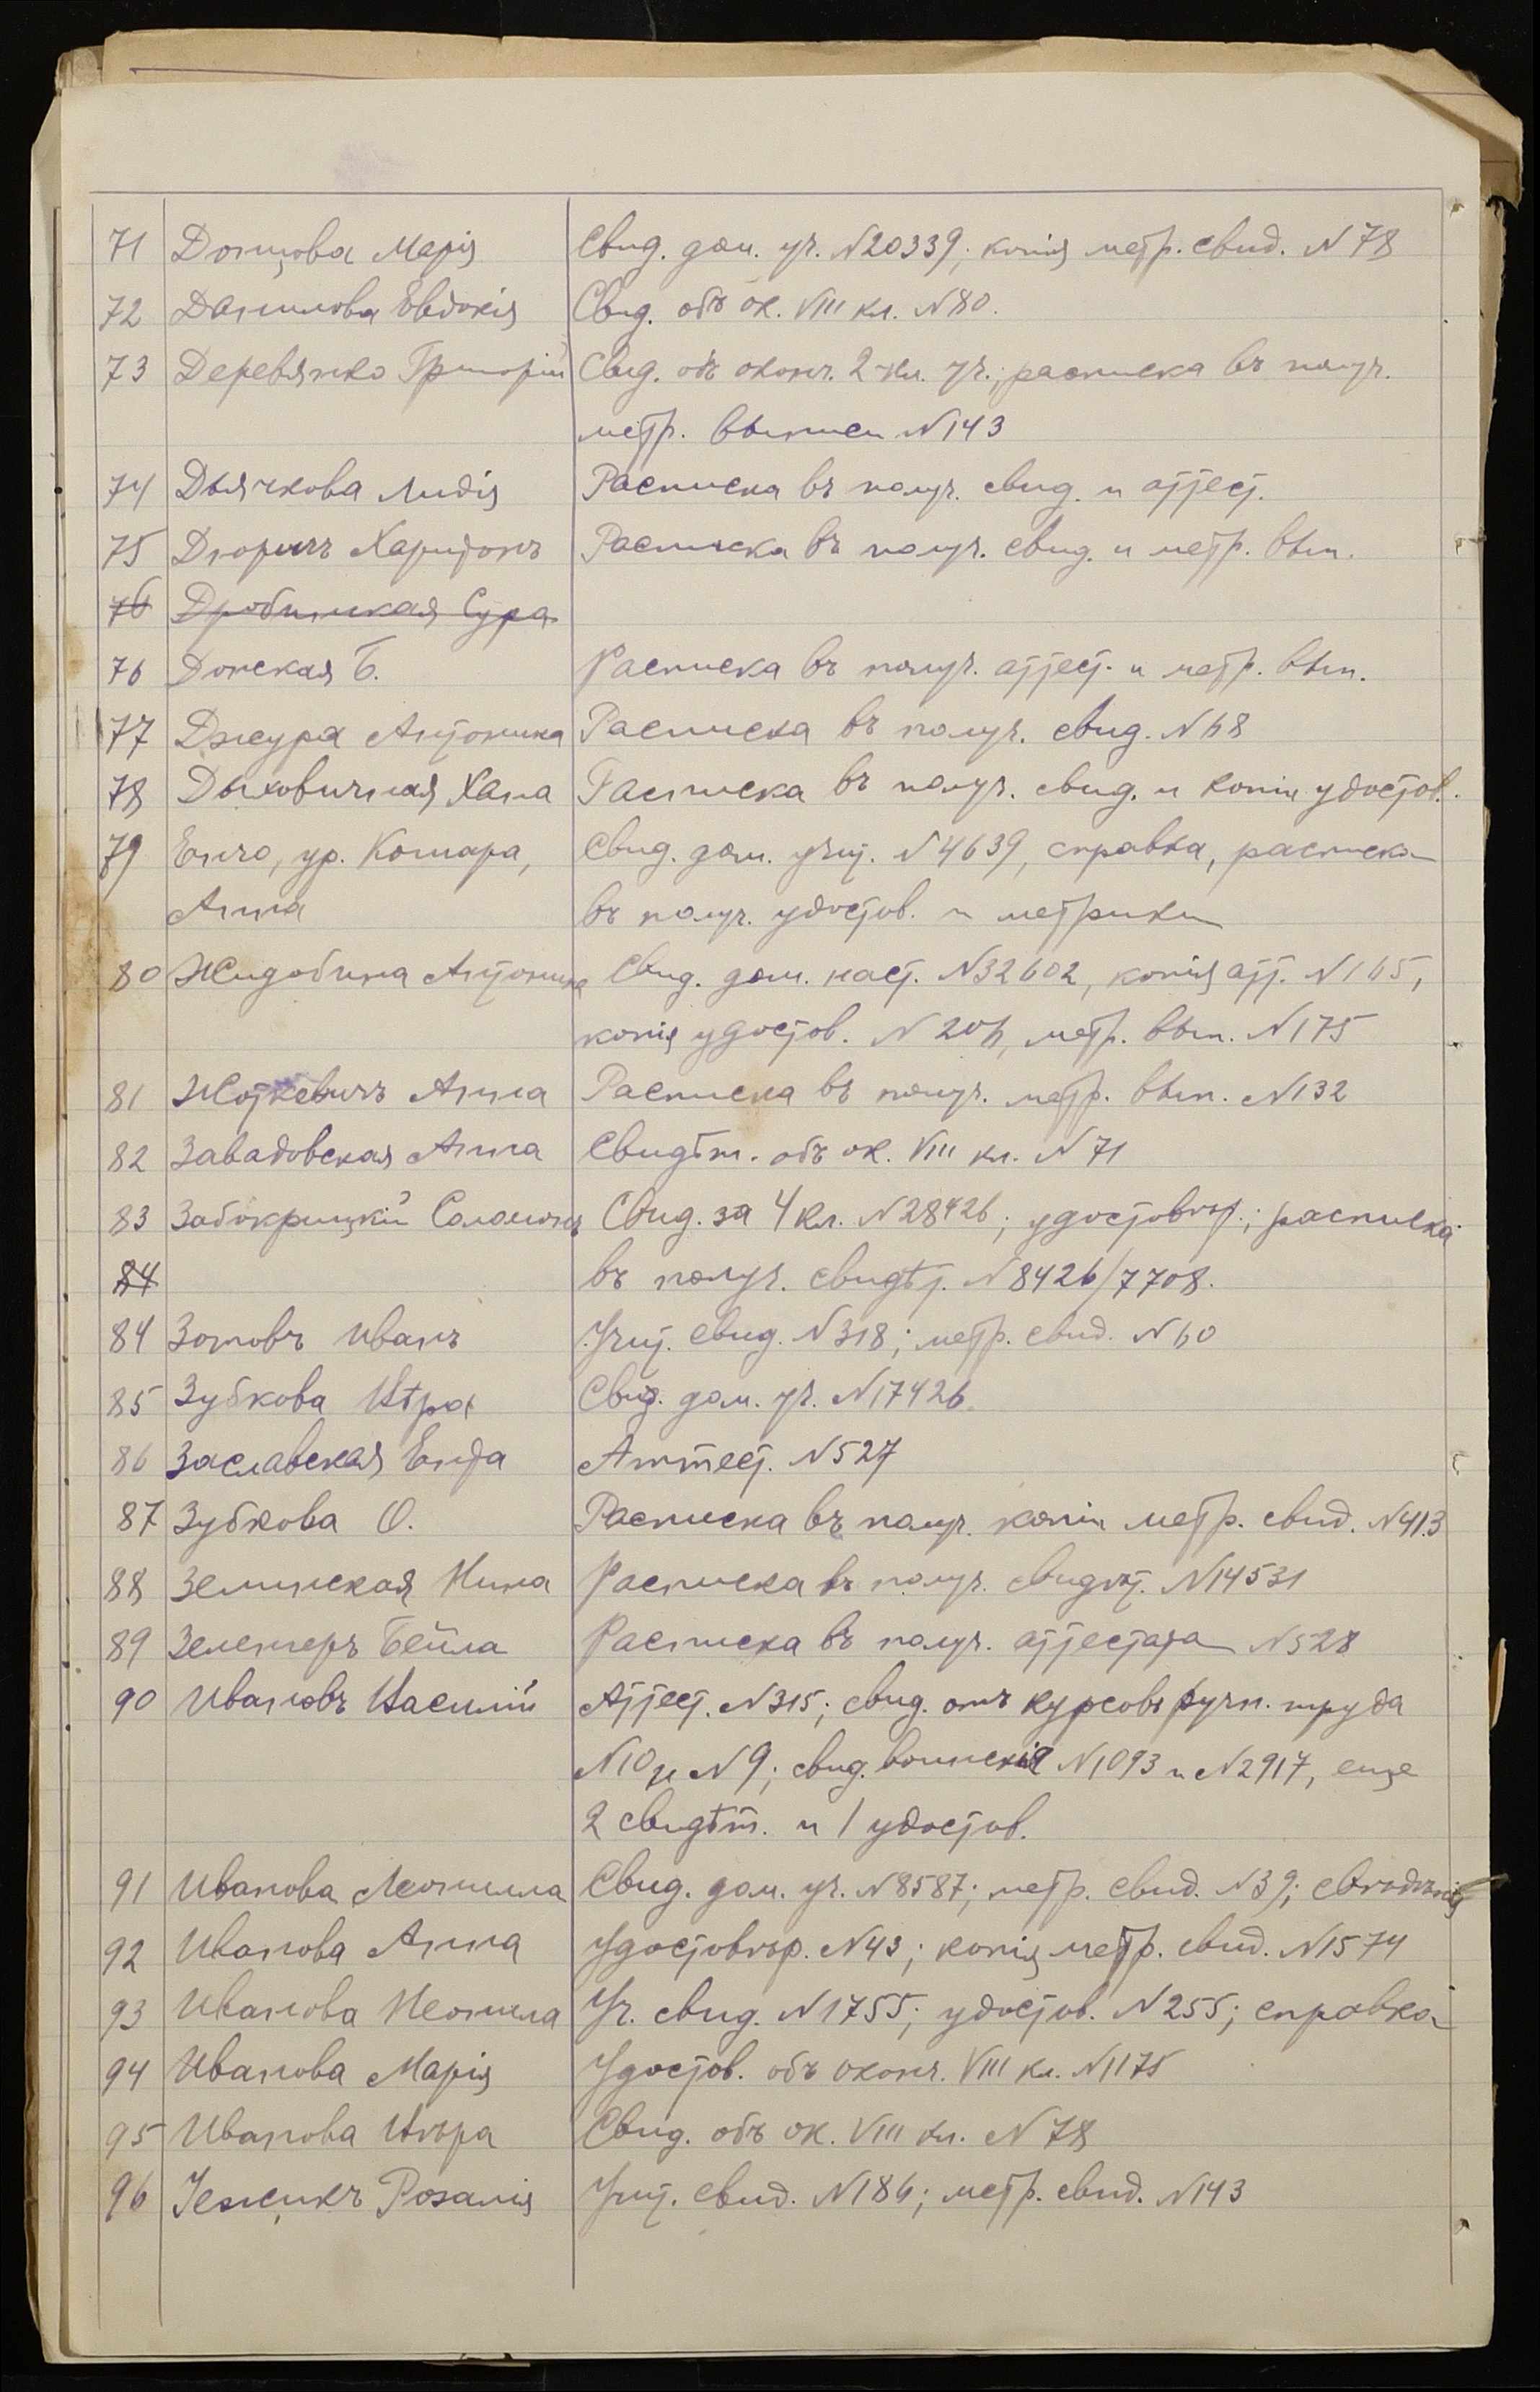 71 Донцова Марія Свид. дом. уч. N20339; копія метр. свид. N 78
72 Данилова Евдокія Свид. объ ок. VIII кл. N80.
73 Деревянко Григорій Свид. объ оконч. 2-кл. уч.; расписка въ получ.
метр. выписи N143
74 Дьячкова Лидія Расписка въ получ. свид. и аттест.
75 Дюричъ Харитонъ Расписка въ получ. свид. и метр. вып.
76 Дробинская Сура
76 Донская Б. Расписка въ получ. аттест. и метр. вып.
77 Джура Антонина Расписка въ получ. свид. N68
78 Дыховичная Хана Расписка въ получ. свид. и копіи удостов.
79 Енчо, ур. Комара, Свид. дом. учит. N4639, справка, расписка
Анна въ получ. удостов. и метрики
80 Жидобина Антонина Свид. дом. наст. N32602, копія атт. N165,
копія удостов. N 206, метр. вып. N175
81 Жоткевичъ Анна Расписка въ получ. метр. вып. N132
82 Завадовская Анна Свидѣт. объ ок. VIII кл. N 71
83 Забокрицкій Соломонъ Свид. за 4 кл. N28426; удостовѣр.; расписка
84 въ получ. свидѣт. N8426/7708.
84 Зотовъ Иванъ Учит. свид. N318; метр. свид. N60
85 Зубкова Вѣра Свид. дом. уч. N17426
86 Заславская Ента Аттест. N527
87 Зубкова О. Расписка въ получ. копіи метр. свид. N413
88 Земинская Нина Расписка въ получ. свидѣт. N14531
89 Зеленгеръ Бейла Расписка въ получ. аттестата N528
90 Ивановъ Василій Аттест. N315; свид. отъ курсовъ ручн. труда
N10 и N9; свид. воинскія N1093 и N2917, еще
2 свидѣт. и 1 удостов.
91 Иванова Леонилла Свид. дом. уч. N8587; метр. свид. N39;
92 Иванова Анна Удостовѣр. N43; копія метр. свид. N1574
93 Иванова Неонила Уч. свид. N1755; удостов. N255; справка
94 Иванова Марія Удостов. объ оконч. VIII кл. N1175
95 Иванова Вѣра Свид. объ ок. VIII кл. N78
96 Іежикъ Розалія Учит. свид. N186; метр. свид. N143